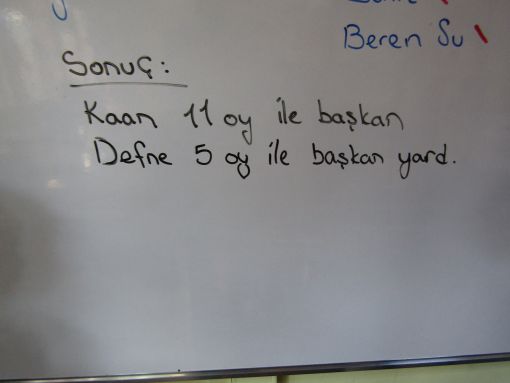 Beren Su
Sonuç:
Kaan 11 oy ile başkan
Defne 5 oy ile başkan yard.